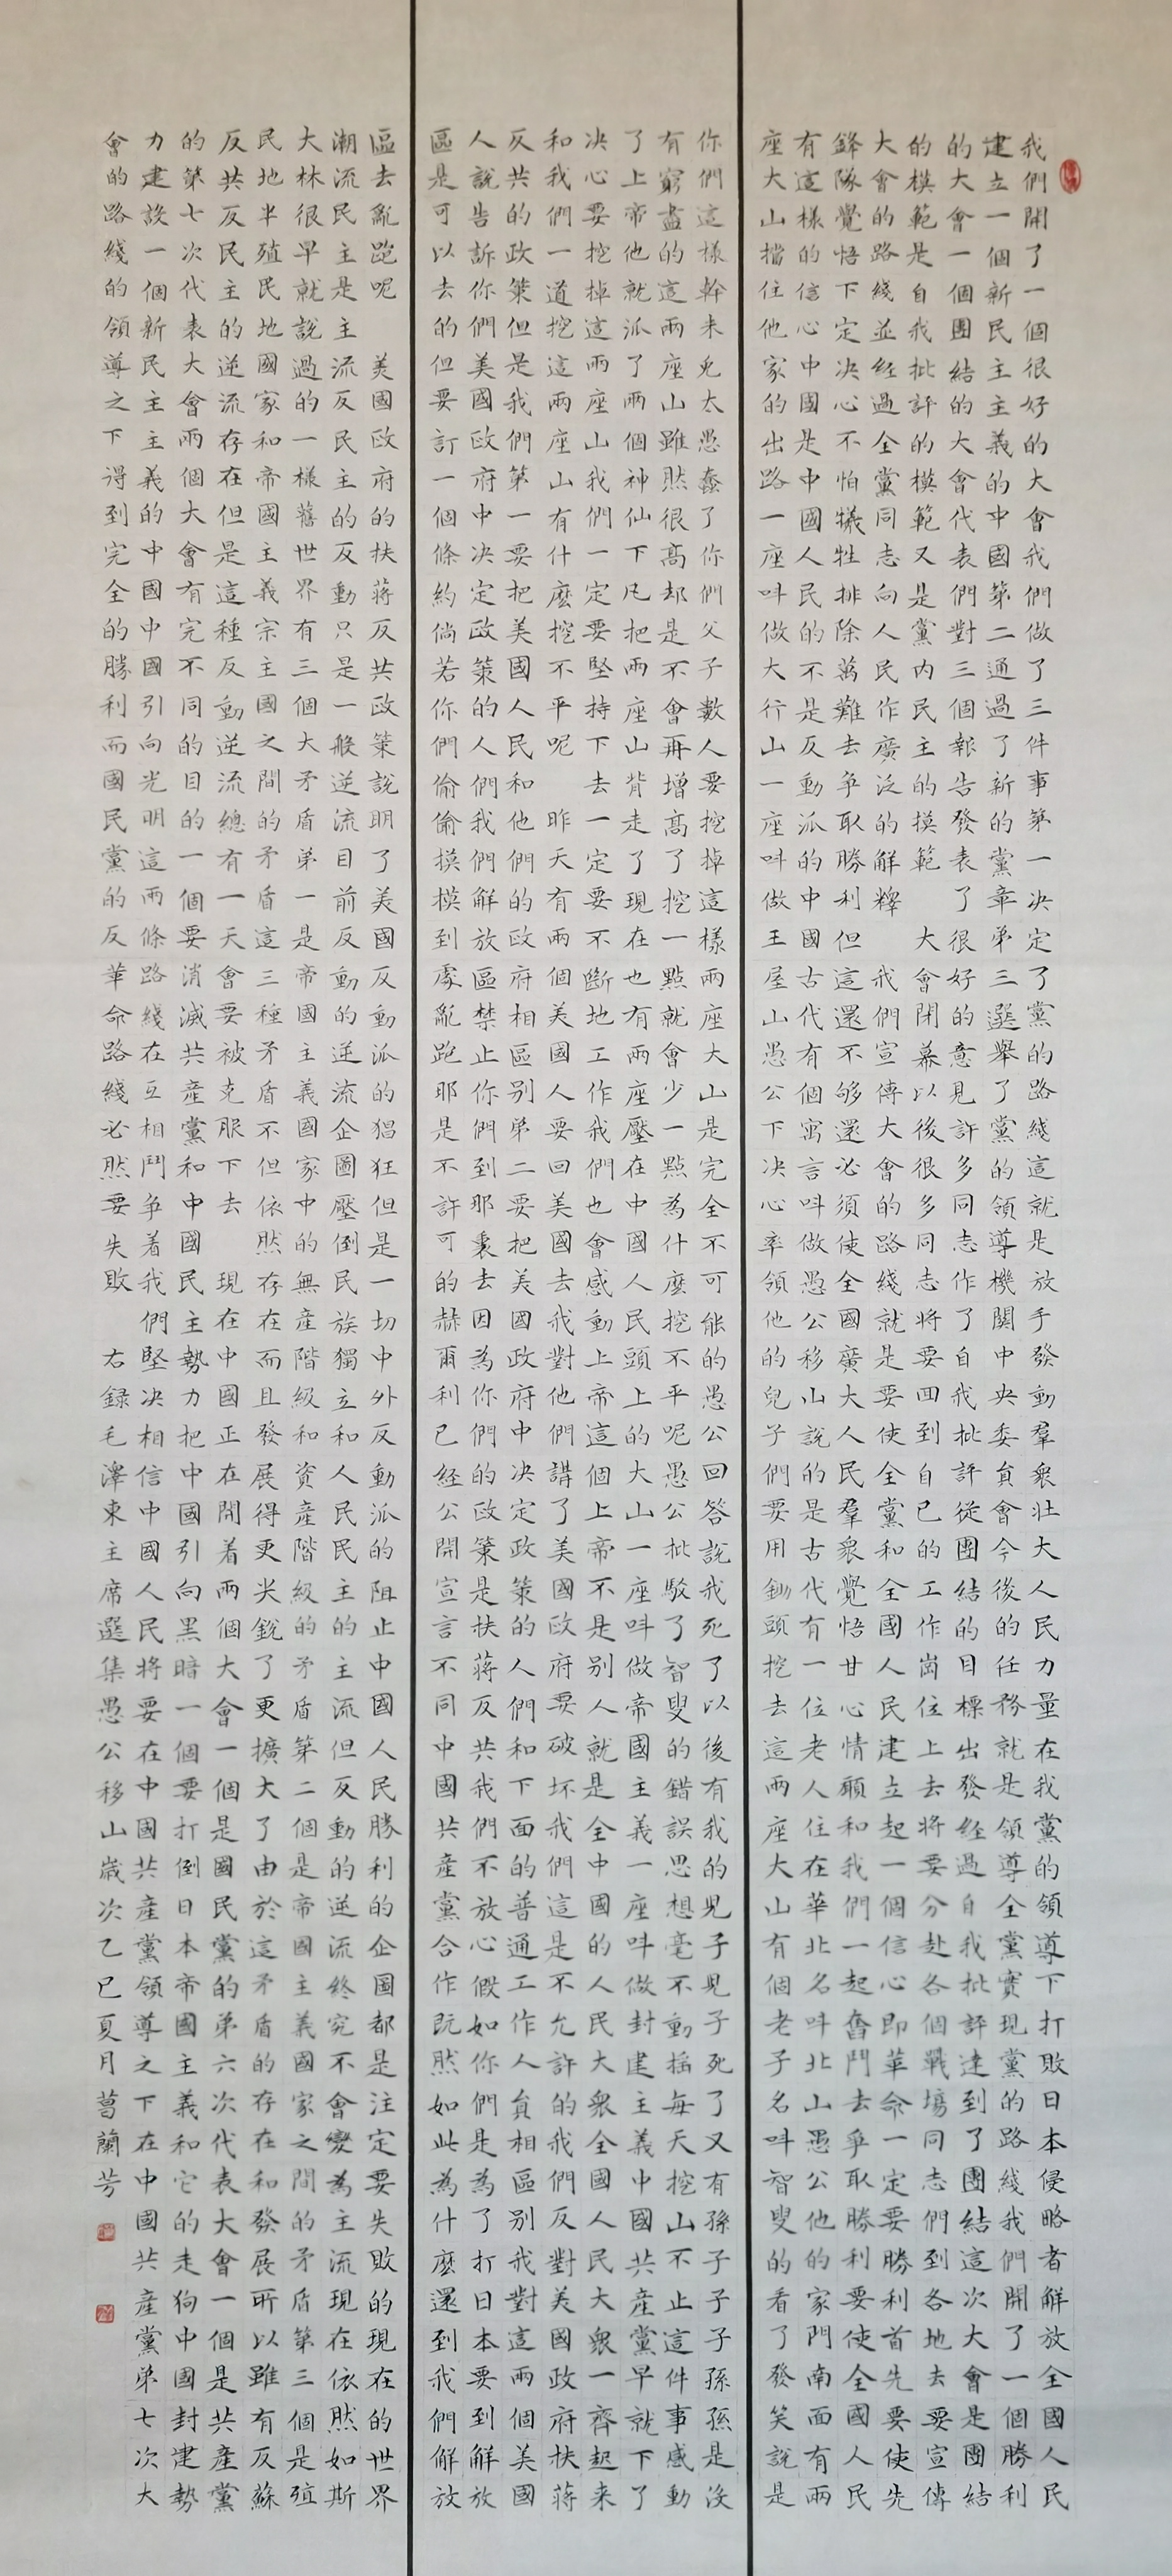 我們開了一個很好的大會我們做了三件事第一决定了黨的路綫這就是放手發動羣衆壯大人民力量在我黨的領導下打敗日本侵略者解放全國人民
建立一個新民主主義的中國第二通過了新的黨章弟三選舉了黨的領導機關中央委員會今後的任務就是領導全黨實現黨的路綫我們開了一個勝利
的大會一個團結的大會代表們對三個報告發表了很好的意見許多同志作了自我批評從團結的目標出發經過自我批評達到了團結這次大會是團結
的模範是自我批評的模範又是黨内民主的摸範 大會閉幕以後很多同志將要回到自己的工作崗位上去將要分赴各個戰場同志們到各地去要宣傳
大會的路綫並經過全黨同志向人民作廣泛的解釋 我們宣傳大會的路綫就是要使全黨和全國人民建立起一個信心即革命一定要勝利首先要使先
鋒隊覺悟下定决心不怕犧牲排除萬難去爭取勝利但這還不够還必須使全國廣大人民羣衆覺悟甘心情願和我們一起奮鬥去爭取勝利要使全國人民
有這樣的信心中國是中國人民的不是反動派的中國古代有個寓言呌做愚公移山說的是古代有一位老人住在華北名呌北山愚公他的家門南面有兩
座大山擋住他家的出路一座呌做大行山一座呌做王屋山愚公下决心率領他的兒子們要用鋤頭挖去這兩座大山有個老子名呌智叟的看了發笑說是
你們這樣幹未免太愚蠢了你們父子數人要挖掉這樣兩座大山是完全不可能的愚公回答說我死了以後有我的兒子兒子死了又有孫子子子孫孫是沒
有窮盡的這兩座山雖然很高却是不會再增高了挖一點就會少一點為什麼挖不平呢愚公批駁了智叟的錯誤思想毫不動搖每天挖山不止這件事感動
了上帝他就派了兩個神仙下凡把兩座山背走了現在也有兩座壓在中國人民頭上的大山一座呌做帝國主義一座呌做封建主義中國共產黨早就下了
决心要挖掉這兩座山我們一定要堅持下去一定要不斷地工作我們也會感動上帝這個上帝不是別人就是全中國的人民大衆全國人民大衆一齊起来
和我們一道挖這兩座山有什麽挖不平呢 昨天有兩個美國人要回美國去我對他們講了美國政府要破坏我們這是不允許的我們反對美國政府扶蒋
反共的政策但是我們第一要把美國人民和他們的政府相區别弟二要把美國政府中决定政策的人們和下面的普通工作人員相區别我對這兩個美國
人說告訴你們美國政府中决定政策的人們我們解放區禁止你們到那裏去因為你們的政策是扶蒋反共我們不放心假如你們是為了打日本要到解放
區是可以去的但要訂一個條約倘若你們偷偷摸摸到處亂跑耶是不許可的赫爾利已經公開宣言不同中國共產黨合作既然如此為什麽還到我們解放
區去亂跑呢 美國政府的扶蒋反共政策說明了美國反動派的猖狂但是一切中外反動派的阻止中國人民勝利的企圖都是注定要失敗的現在的世界
潮流民主是主流反民主的反動只是一般逆流目前反動的逆流企圖壓倒民族獨立和人民民主的主流但反動的逆流終究不會變為主流現在依然如斯
大林很早就說過的一樣舊世界有三個大矛盾弟一是帝國主義國家中的無產階級和資產階級的矛盾第二個是帝國主義國家之間的矛盾第三個是殖
民地半殖民地國家和帝國主義宗主國之間的矛盾這三種矛盾不但依然存在而且發展得更尖銳了更擴大了由於這矛盾的存在和發展所以雖有反蘇
反共反民主的逆流存在但是這種反動逆流總有一天會要被克服下去 現在中國正在開着兩個大會一個是國民黨的弟六次代表大會一個是共產黨
的第七次代表大會兩個大會有完不同的目的一個要消滅共產黨和中國民主勢力把中國引向黑暗一個要打倒日本帝國主義和它的走狗中國封建勢
力建設一個新民主主義的中國中國引向光明這兩條路綫在互相鬥争着我們堅决相信中國人民將要在中國共產黨領導之下在中國共產黨弟七次大
會的路綫的領導之下得到完全的勝利而國民黨的反革命路綫必然要失敗 右録毛澤東主席選集愚公移山歲次乙巳夏月葛蘭芳